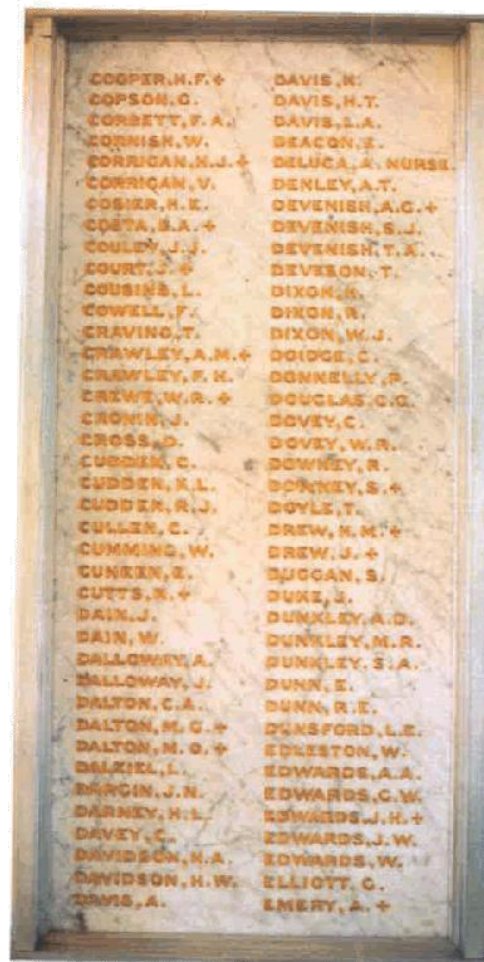 COOPER, H.F.+
COPSON, G.
CORBETT, F.A.
CORNISH, W.
CORRIGAN, H.J.+
CORRIGAN, V.
COSIER, H.E.
COSTA, B.A.+
COULEY, J.J.
COURT, J.+
COUSINS, L.
COWELL, F.
CRAVINO, T.
CRAWLEY, A.M.+
CRAWLEY, F.H.
CREWE, W.R.+
CRONIN, J.
CROSS, D.
CUDDEN, C.
CUDDEN, K.L.
CUDDEN, R.J.
CULLEN, C.
CUMMING, W.
CUNEEN, E.
CUTTS, R.+
DAIN, J.
DAIN, W.
DALLOWAY, A.
DALLOWAY, J.
DALTON, C.A.
DALTON, M.G.+
DALTON, M.O.+
DALZIEL, L.
DARGIN, J.N.
DARNEY, H.L.
DAVEY, C.
DAVIDSON, H.A.
DAVIDSON, H.W.
DAVIS, A.
DAVIS, H.
DAVIS, H.T.
DAVIS, L.A.
DEACON, E.
DELUCA, A. NURSE
DENLEY, A.T.
DEVENISH, A.G.+
DEVENISH, S.J.
DEVENISH, T.A.
DEVESON, T.
DIXON, H.
DIXON, R.
DIXON, W.J.
DOIDGE, C.
DONNELLY, P.
DOUGLAS, C.G.
DOVEY, C.
DOVEY, W.R.
DOWNEY, R.
DOWNEY, S.+
DOYLE, T.
DREW, H.M.+
DREW, J.+
DUGGAN, S.
DUKE, J.
DUNKLEY, A.D.
DUNKLEY, M.R.
DUNKLEY, S.A.
DUNN, E.
DUNN, R.E.
DUNSFORD, L.E.
EDLESTON, W.
EDWARDS, A.A.
EDWARDS, G.W.
EDWARDS, J.H.+
EDWARDS, J.W.
EDWARDS, W.
ELLIOTT, G.
EMERY, A.+